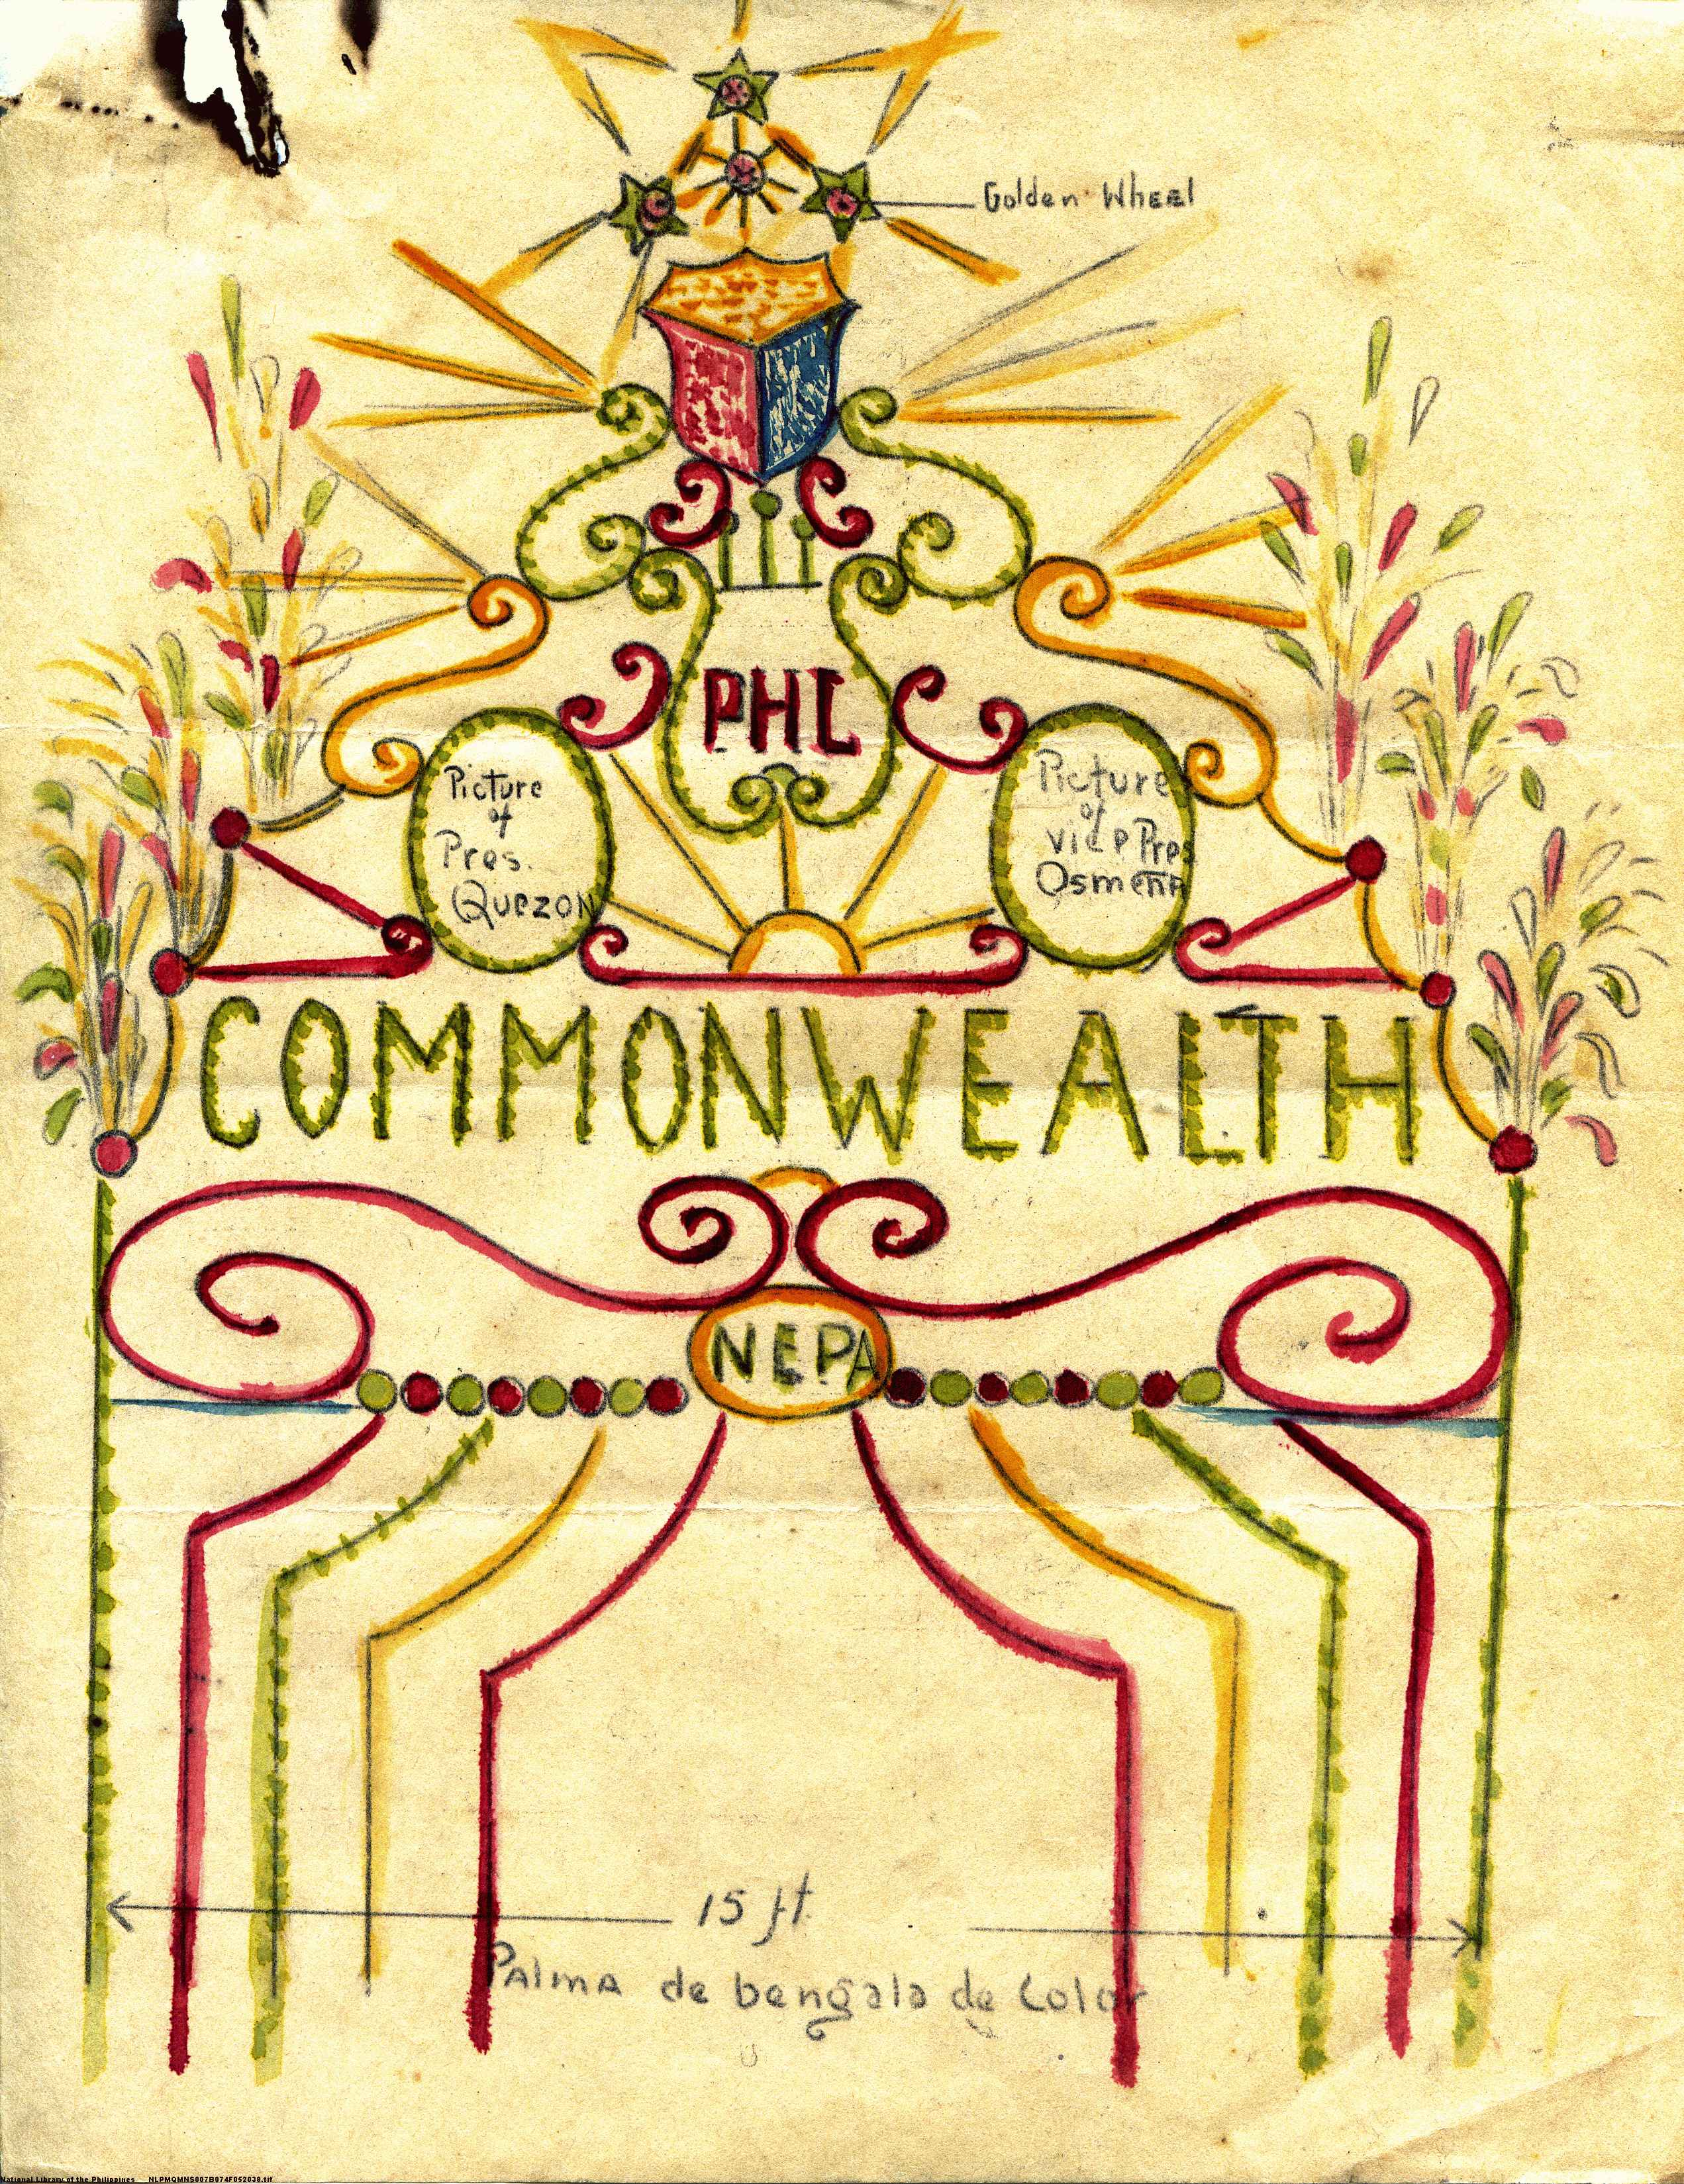 Golden Wheel
PHL
Picture
of
Pres.
Quezon
Picture
of
Vice Pres
Osmeña
COMMONWEALTH
NEPA
15 ft
Palma de bengala de Color
National Library of the Philippines NLPMQMNS007B074F052038.tif